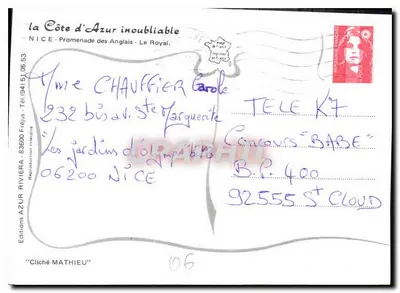 la Côte d'Azur inoubliable
NICE - Promenade des Anglais - Le Royal.
Mme CHAUFFIER Carole
232 bis av. Ste Marguerite
"Les jardins d'olympie
06200 NICE
TELE K7
CONCOURS "BABE"
B.P. 400
92555 St CLOUD
Editions AZUR RIVIERA - 83600 Fréjus - Tél (94) 51 56 53
Reproduction interdite
"Cliché MATHIEU"
06